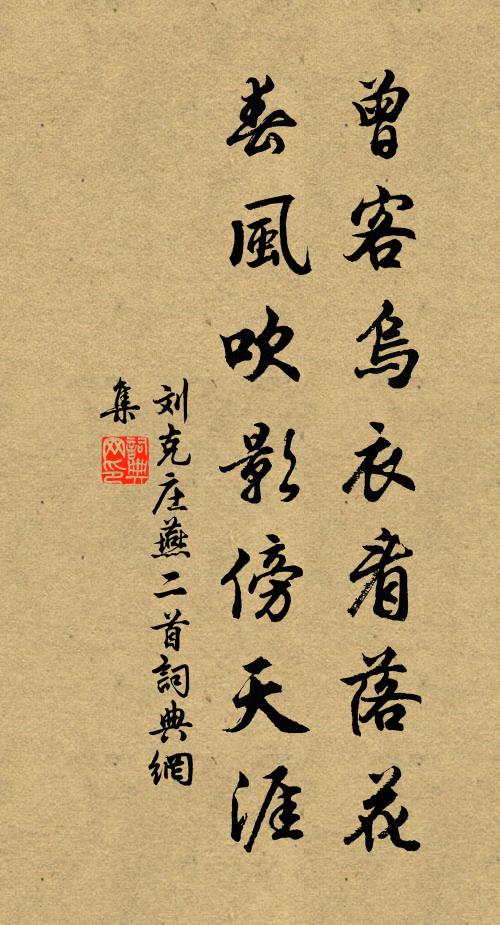 曾客烏衣看落花
春風吹影傍天涯
刘克庄燕二首詞典網
集
詞典
网印